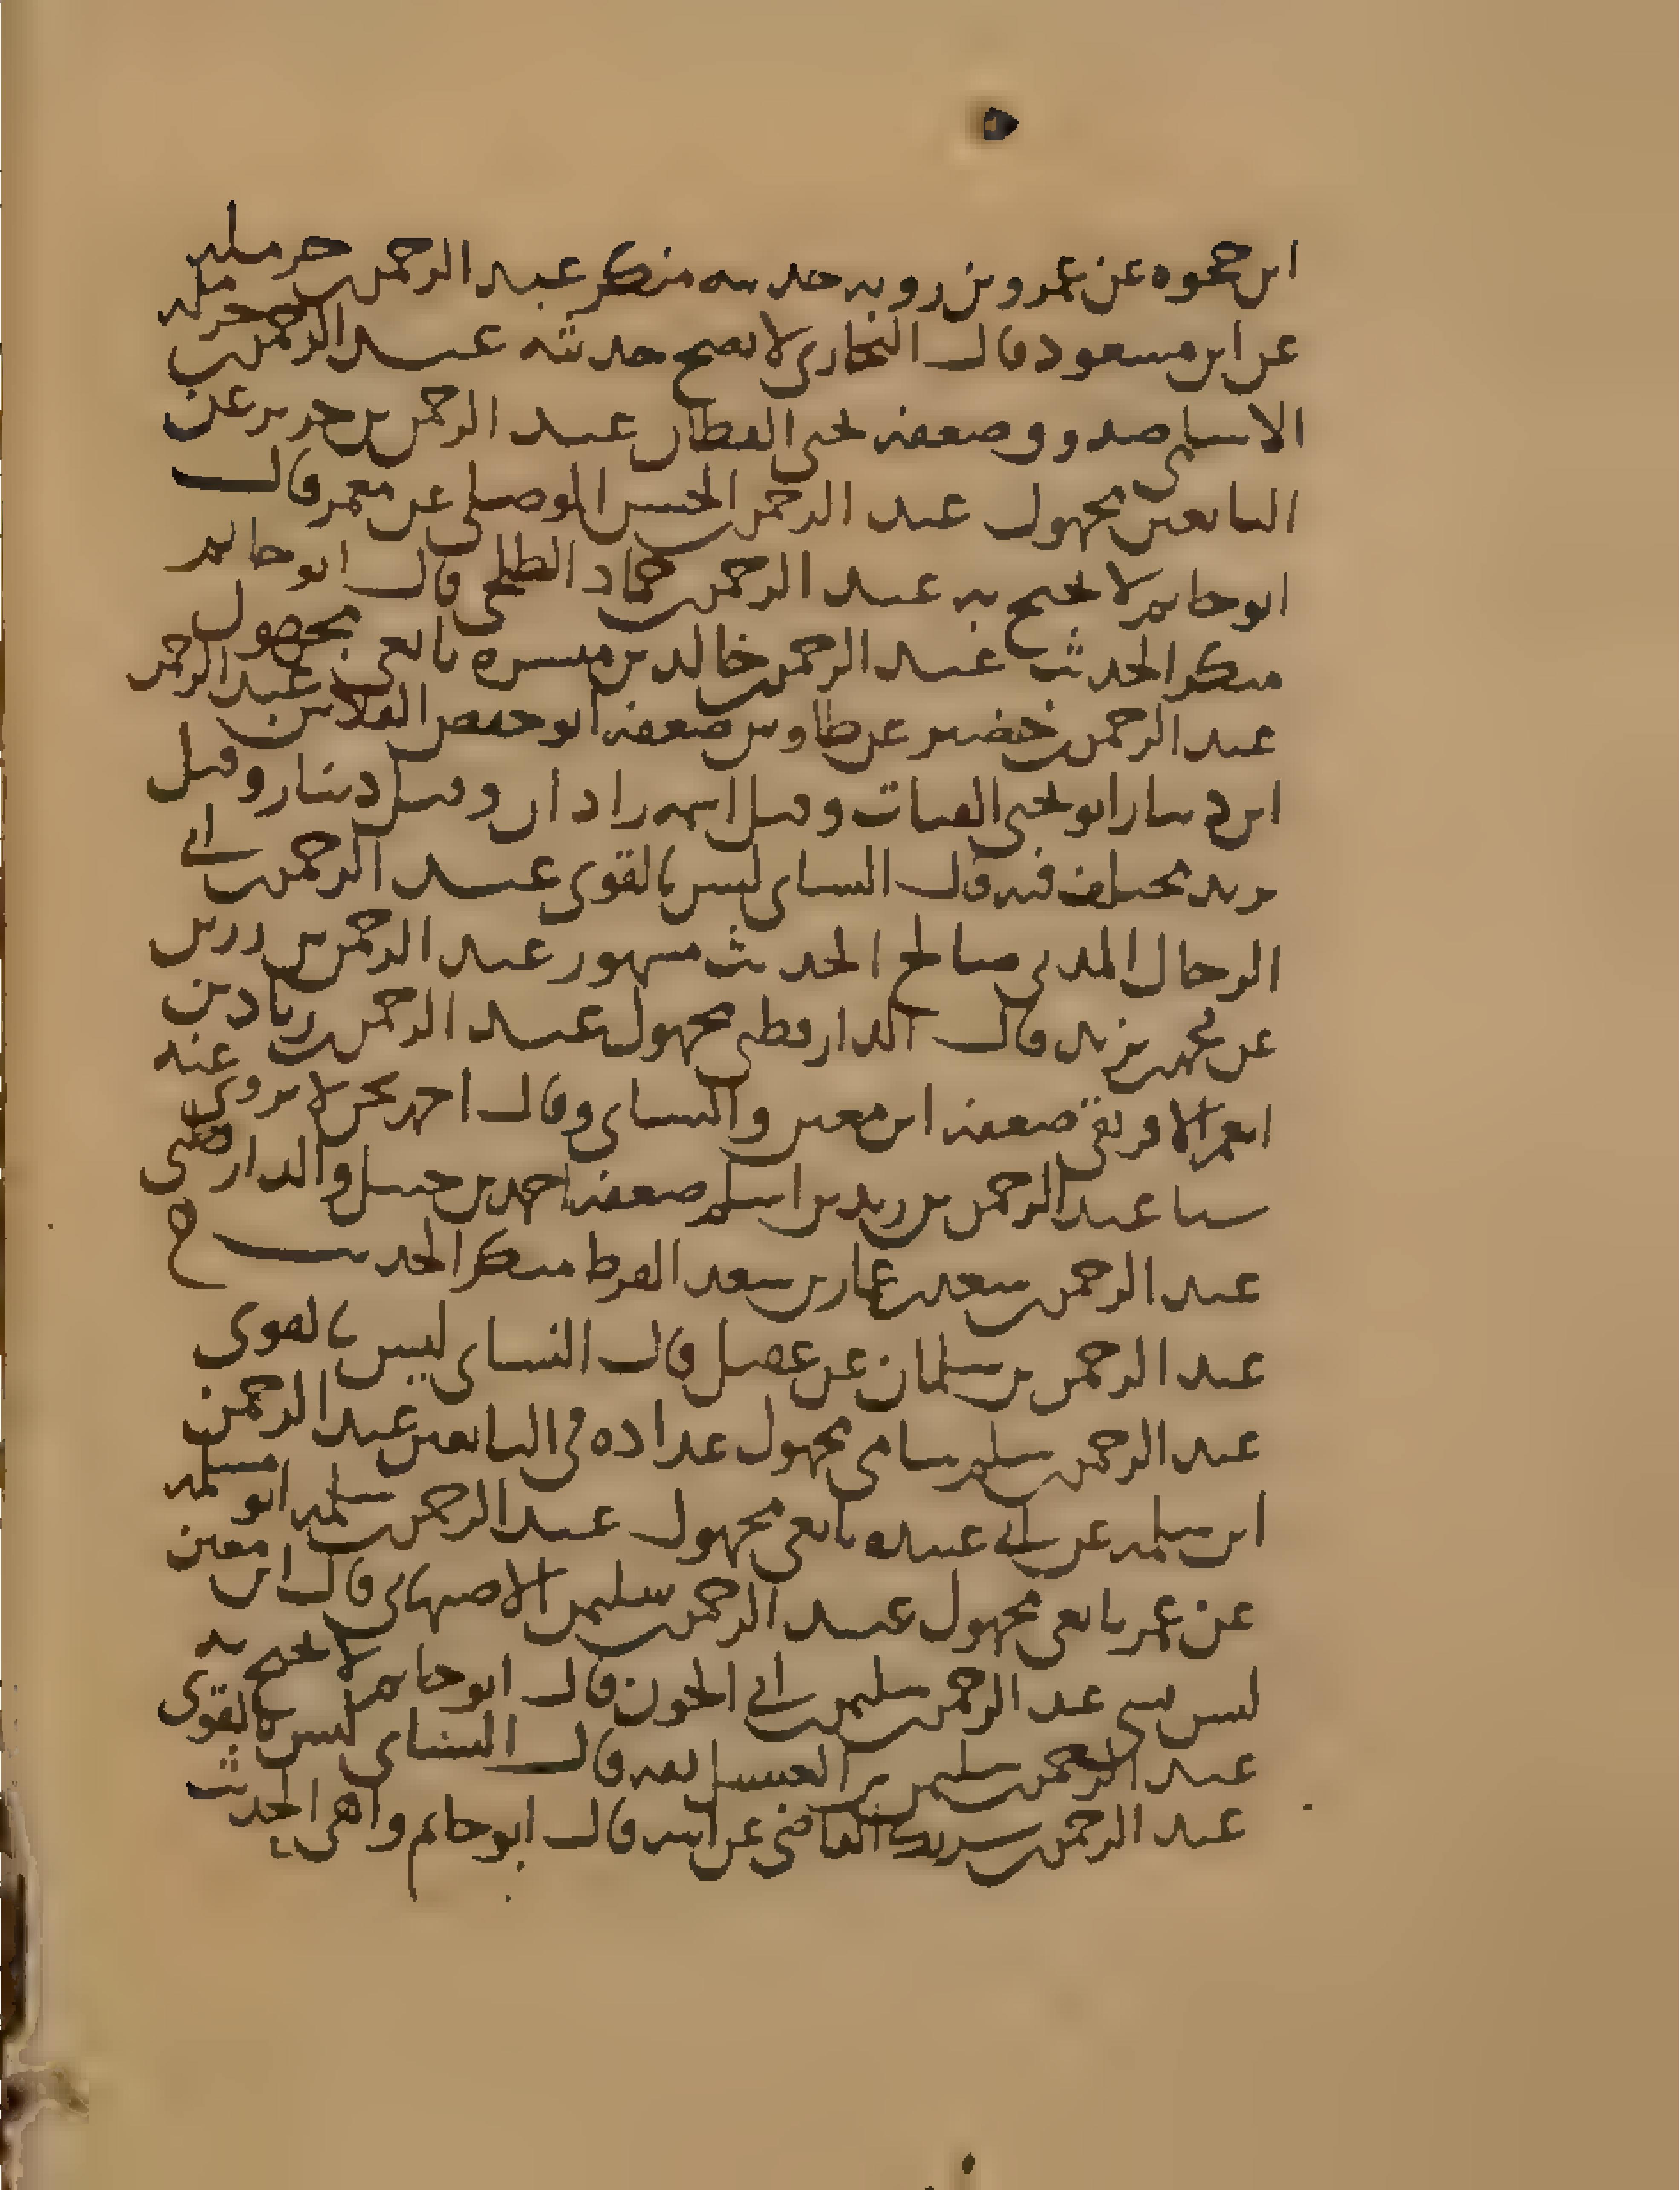 ابن حموه عن عمرو بن روبه حديثه منكر عبد الرحمن بن حرمله
عن ابن مسعود قال البخاري لا يصح حديثه عبد الرحمن بن حرمله
الاسلمي صدوق وضعفه يحيى القطان عبد الرحمن بن حريز عن
التابعين مجهول عبد الرحمن بن الحسن الموصلي عن معمر قال
ابو حاتم لا يحتج به عبد الرحمن بن حماد الطلحي قال ابو حاتم
منكر الحديث عبد الرحمن بن خالد بن ميسره تابعي مجهول
عبد الرحمن بن خضير عن طاوس ضعفه ابو حفص الفلاس عبد الرحمن
ابن دينار ابو يحيى القتات وقيل اسمه زاذان وقيل دينار وقيل
يزيد مختلف فيه قال النساي ليس بالقوي عبد الرحمن بن ابي
الرجال المدني صالح الحديث مشهور عبد الرحمن بن رزين
عن محمد بن يزيد قال الدارقطني مجهول عبد الرحمن بن زياد بن
انعم الافريقي ضعفه ابن معين والنساي وقال احمد نحن لا نروي عنه
شيا عبد الرحمن بن زيد بن اسلم ضعفه احمد بن حنبل والدارقطني
عبد الرحمن بن سعد بن عمار بن سعد القرظ منكر الحديث ح
عبد الرحمن بن سلمان عن عقيل قال النساي ليس بالقوي
عبد الرحمن بن سلم شامي مجهول عداده في التابعين عبد الرحمن
ابن سلمه عن ابي عبيده تابعي مجهول عبد الرحمن بن مسلمه ابو مسلمه
عن عمر تابعي مجهول عبد الرحمن بن سليمن الاصبهاني قال ابن معين
ليس بشي عبد الرحمن بن سليمن بن ابي الجون قال ابو حاتم لا يحتج به
عبد الرحمن بن سليمن بن الغسيل ثقه قال النساي ليس بالقوي
عبد الرحمن بن شريك القاضي عن ابيه قال ابو حاتم واهي الحديث